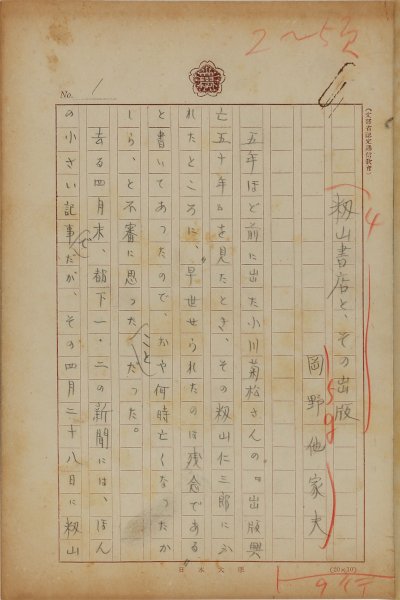 2〜5頁
No. 1
(文部省認定通信教育)
籾山書店と、その出版
4
岡野他家夫
15g
五年ほど前に出た小川菊松さんの『出版興
亡五十年』を見たとき、その籾山仁三郎にふ
れたところに、"早世せられたのは残念である"
と書いてあったので、おや何時亡くなったか
しら、と不審に思ったことだった。
去る四月末、都下一・二の新聞には、ほん
の小さい記事でだが、その四月二十八日に籾山
日本大学
(20×10)
9行